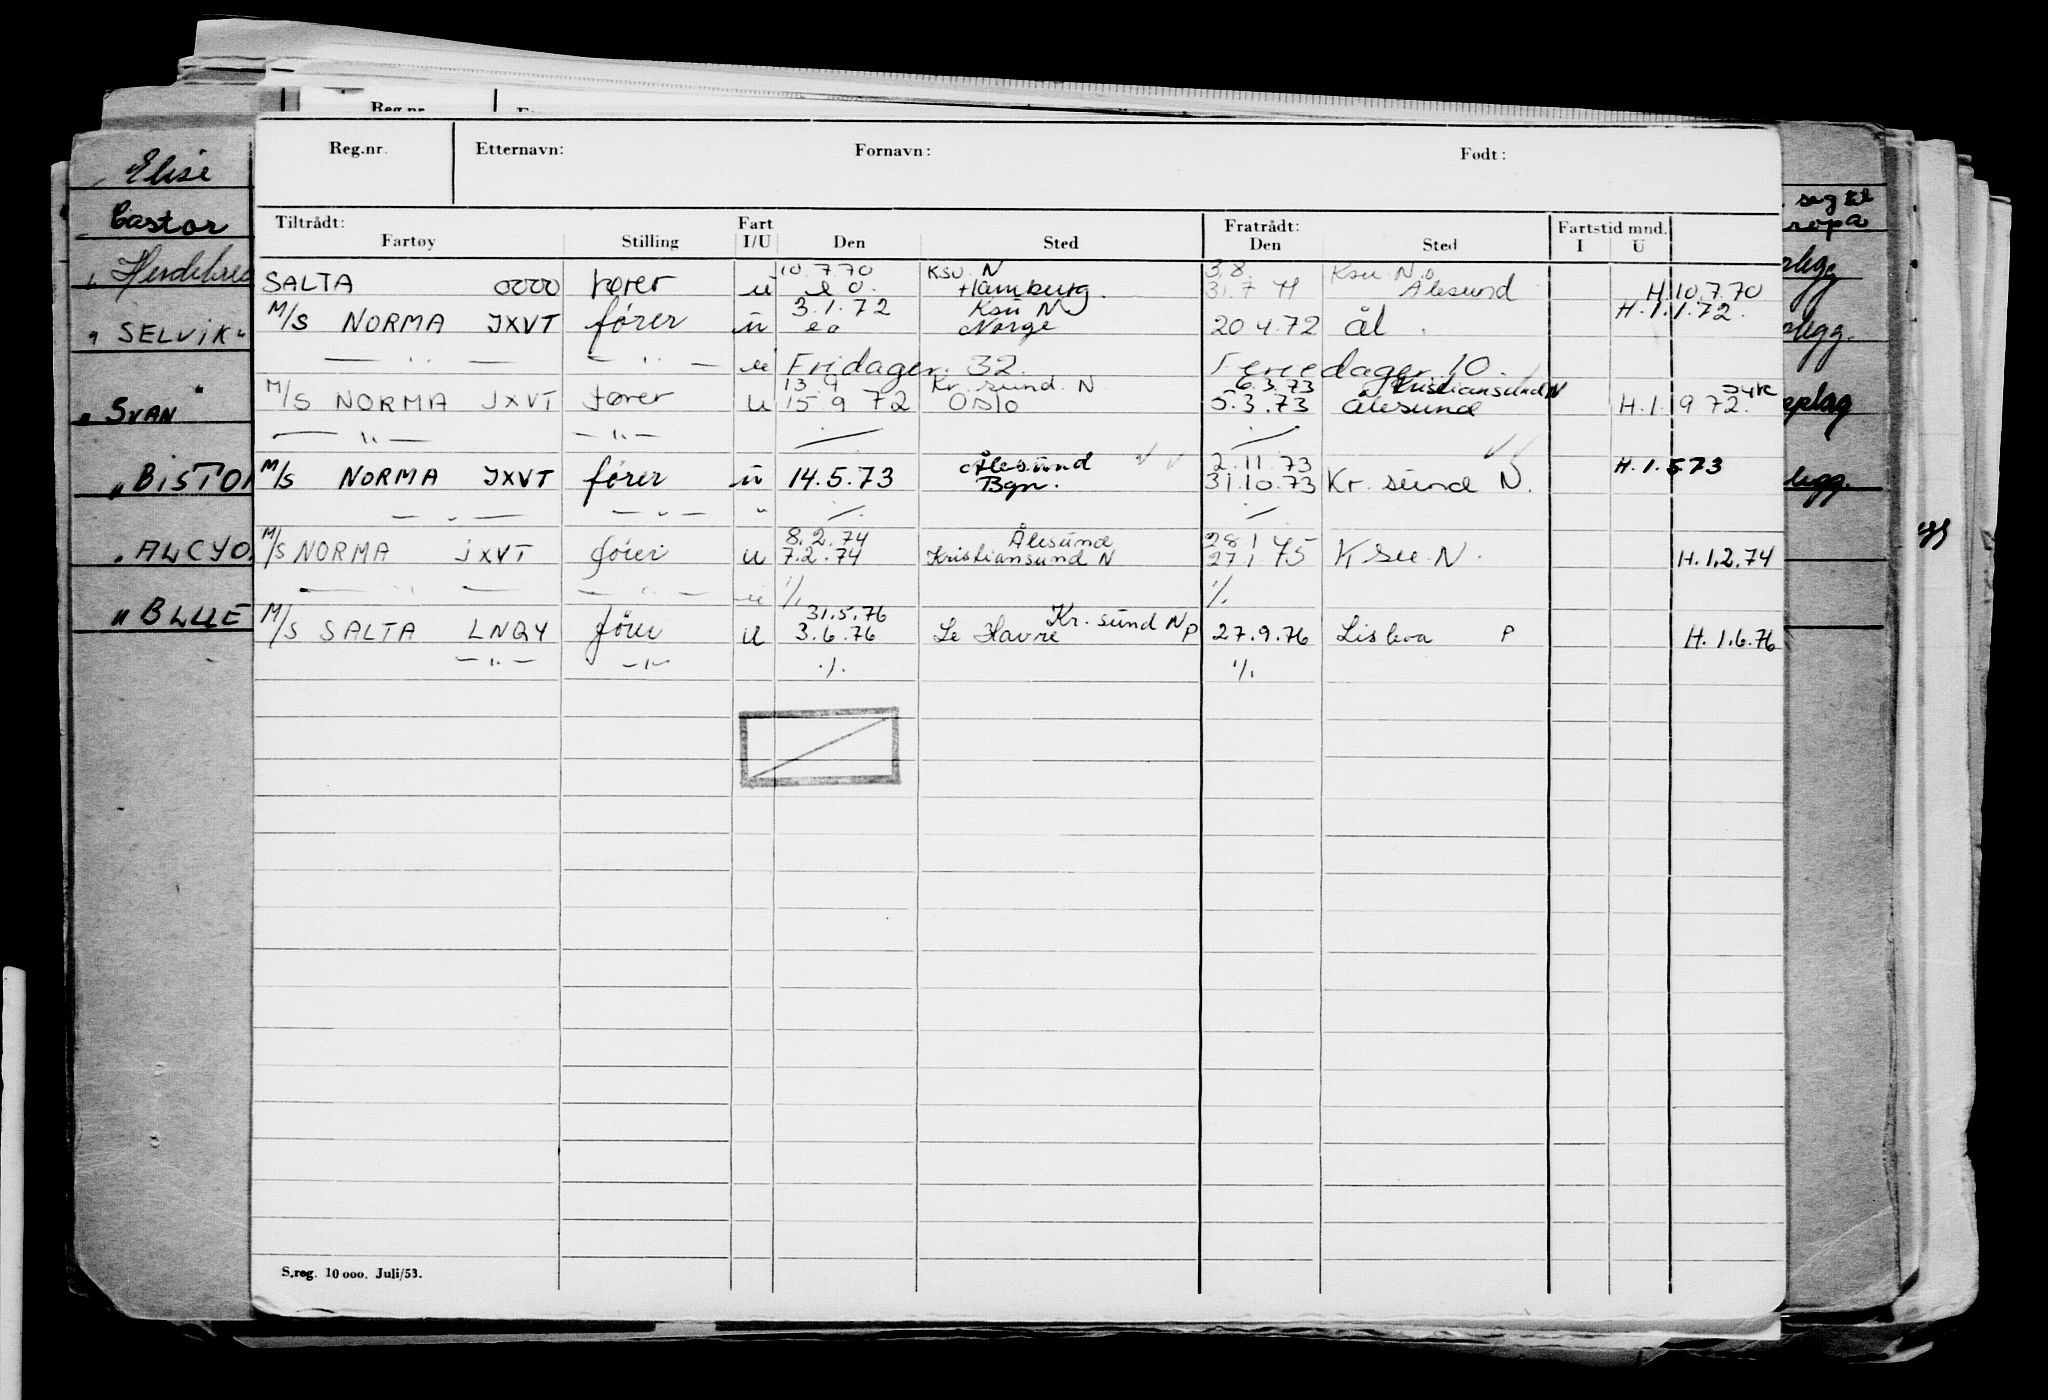 Reg.nr.
Reg.nr. Etternavn: Fornavn: Født:
Tiltrådt: Fart Fratrådt: Fartstid mnd.
Fartøy Stilling I/U Den Sted Den Sted I U
10.7.70 Ksu. N 3.8. Ksu. N.
SALTA OOOO fører u e o. Hamburg. 31.7 71 Ålesund H.10.7.70
3.1.72 Ksu N H.1.1.72.
M/S NORMA JXVT fører u e o Norge 20.4.72 ål.
— " — — " — u Fridager. 32. Feriedager 10.
13 9 Kr. sund. N 6.3.73 Kristiansund N
M/S NORMA JXVT fører u 15 9 72 Oslo 5.3.73 Ålesund H.1.9 72.
— " — — " — ./. ./.
Ålesund 2.11.73 H.1.5.73
M/S NORMA JXVT fører u 14.5.73 Bgn. 31.10.73 Kr. sund N.
— " — — " — " ./. ./.
8.2.74 Ålesund 28 1 75
M/S NORMA JXVT fører u 7.2.74 Kristiansund N 27 1 75 Ksu. N. H.1.2.74
— " — — " — u ./. ./.
31.5.76 Kr. sund N
M/S SALTA LNQY fører u 3.6.76 Le Havre P 27.9.76 Lisboa P H.1.6.76
— " — — " — ./. ./.
S.reg. 10 000. Juli/53.
Elise
Castor
SELVIK
" SVAN
" BISTON
" ALCYO
" BLUE
seg til
ropa
legg
legg.
opplag
legg.